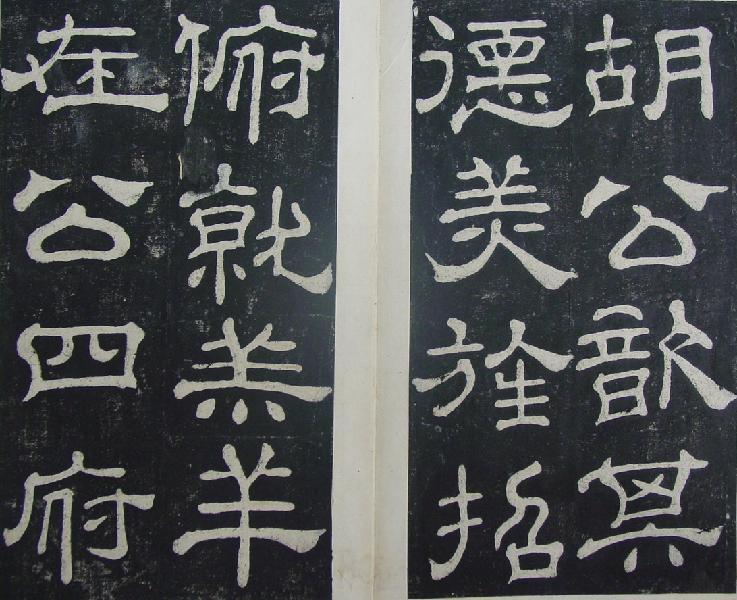 胡公歆其
德美旌招
俯就羔羊
在公四府